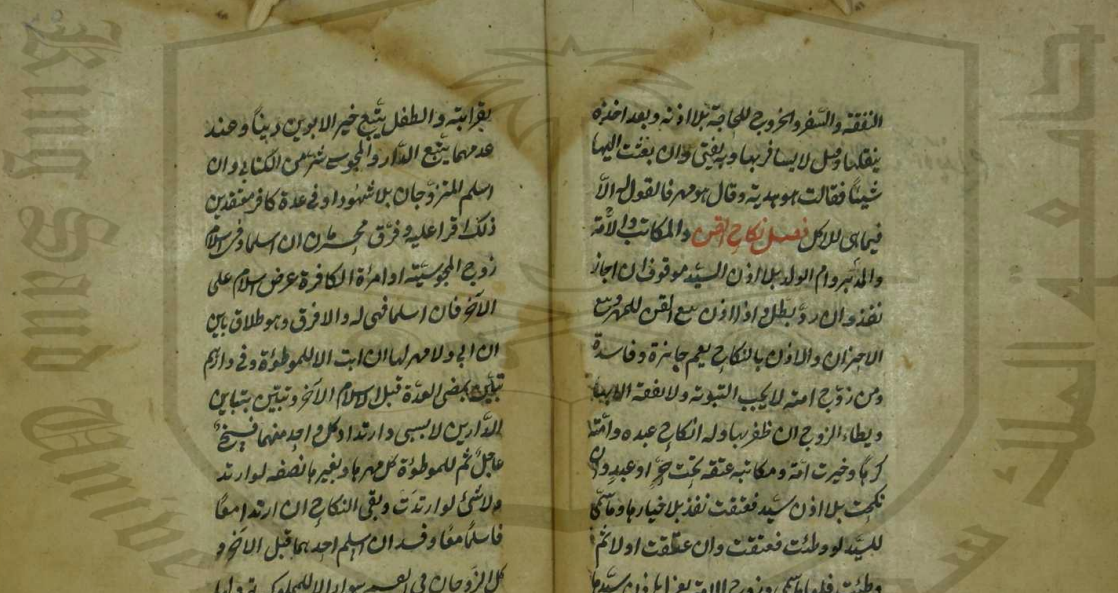 النفقة والسفر والخروج للحاجة بلا اذنه وبعد اخذه
ينقلها وقيل لا يسافر بها وبه يفتى وان بعث اليها
شيئا فقالت هو هدية وقال هو مهر فالقول له الا
فيما هئ للاكل فصل نكاح القن والمكاتب والامة
والمدبر وام الولد بلا اذن السيد موقوف ان اجاز
نفذ وان رد بطل واذا اذن بيع القن للمهر وسع
الاخران والاذن بالنكاح يعم جائزه وفاسده
ومن زوج امته لا يجب التبوئة ولا نفقة الا بها
ويطاء الزوج ان ظفر بها وله انكاح عبده وامته
كرها وخيرت امة ومكاتبة عتقت تحت حر او عبد وان
نكحت بلا اذن سيد فعتقت نفذ بلا خيارها وما سمى
للسيد لو وطئت فعتقت وان عتقت اولا ثم
وطئت فلها ما سمى
بقرابته والطفل يتبع خير الابوين دينا وعند
عدمهما يتبع الدار والمجوسي شر من الكتابي وان
اسلم المتزوجان بلا شهود او في عدة كافر معتقدين
ذلك اقرا عليه وفرق محرمان ان اسلما وفى اسلام
زوج المجوسية او امراة الكافر عرض اسلام على
الآخر فان اسلما فهى له والا فرق وهو طلاق باين
ان ابى ولا مهر لها ان ابت الا للموطؤة وفى دارهم
تبين بمضى العدة قبل اسلام الآخر وتبين بتباين
الدارين لا بسبى وارتداد كل واحد منهما فسخ
عاجل ثم للموطؤة كل مهرها ولغيرها نصفه لو ارتد
ولا شئ لو ارتدت وبقى النكاح ان ارتدا معا
فاسلما معا وفسد ان اسلم احدهما قبل الاخر و
كل الزوجات فى القسم سواء الا المملوكة